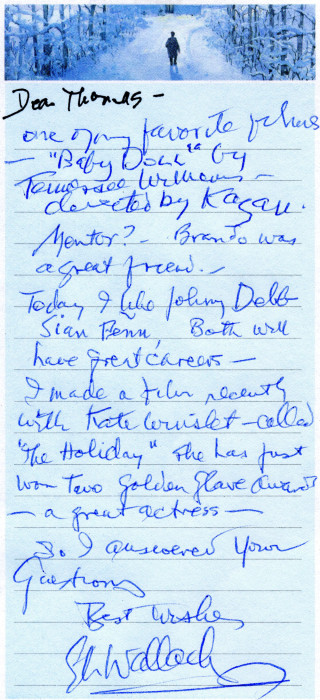 Dear Thomas –
one of my favorite films
– "Baby Doll" by
Tennessee Williams –
directed by Kazan.
Mentor? – Brando was
a great friend. –
Today I like Johnny Depp
Sean Penn, Both will
have great careers –
I made a film recently
with Kate Winslet – called
"The Holiday" She has just
won two Golden Glove awards
– a great actress –
So I answered your
Questions
Best wishes
Eli Wallach